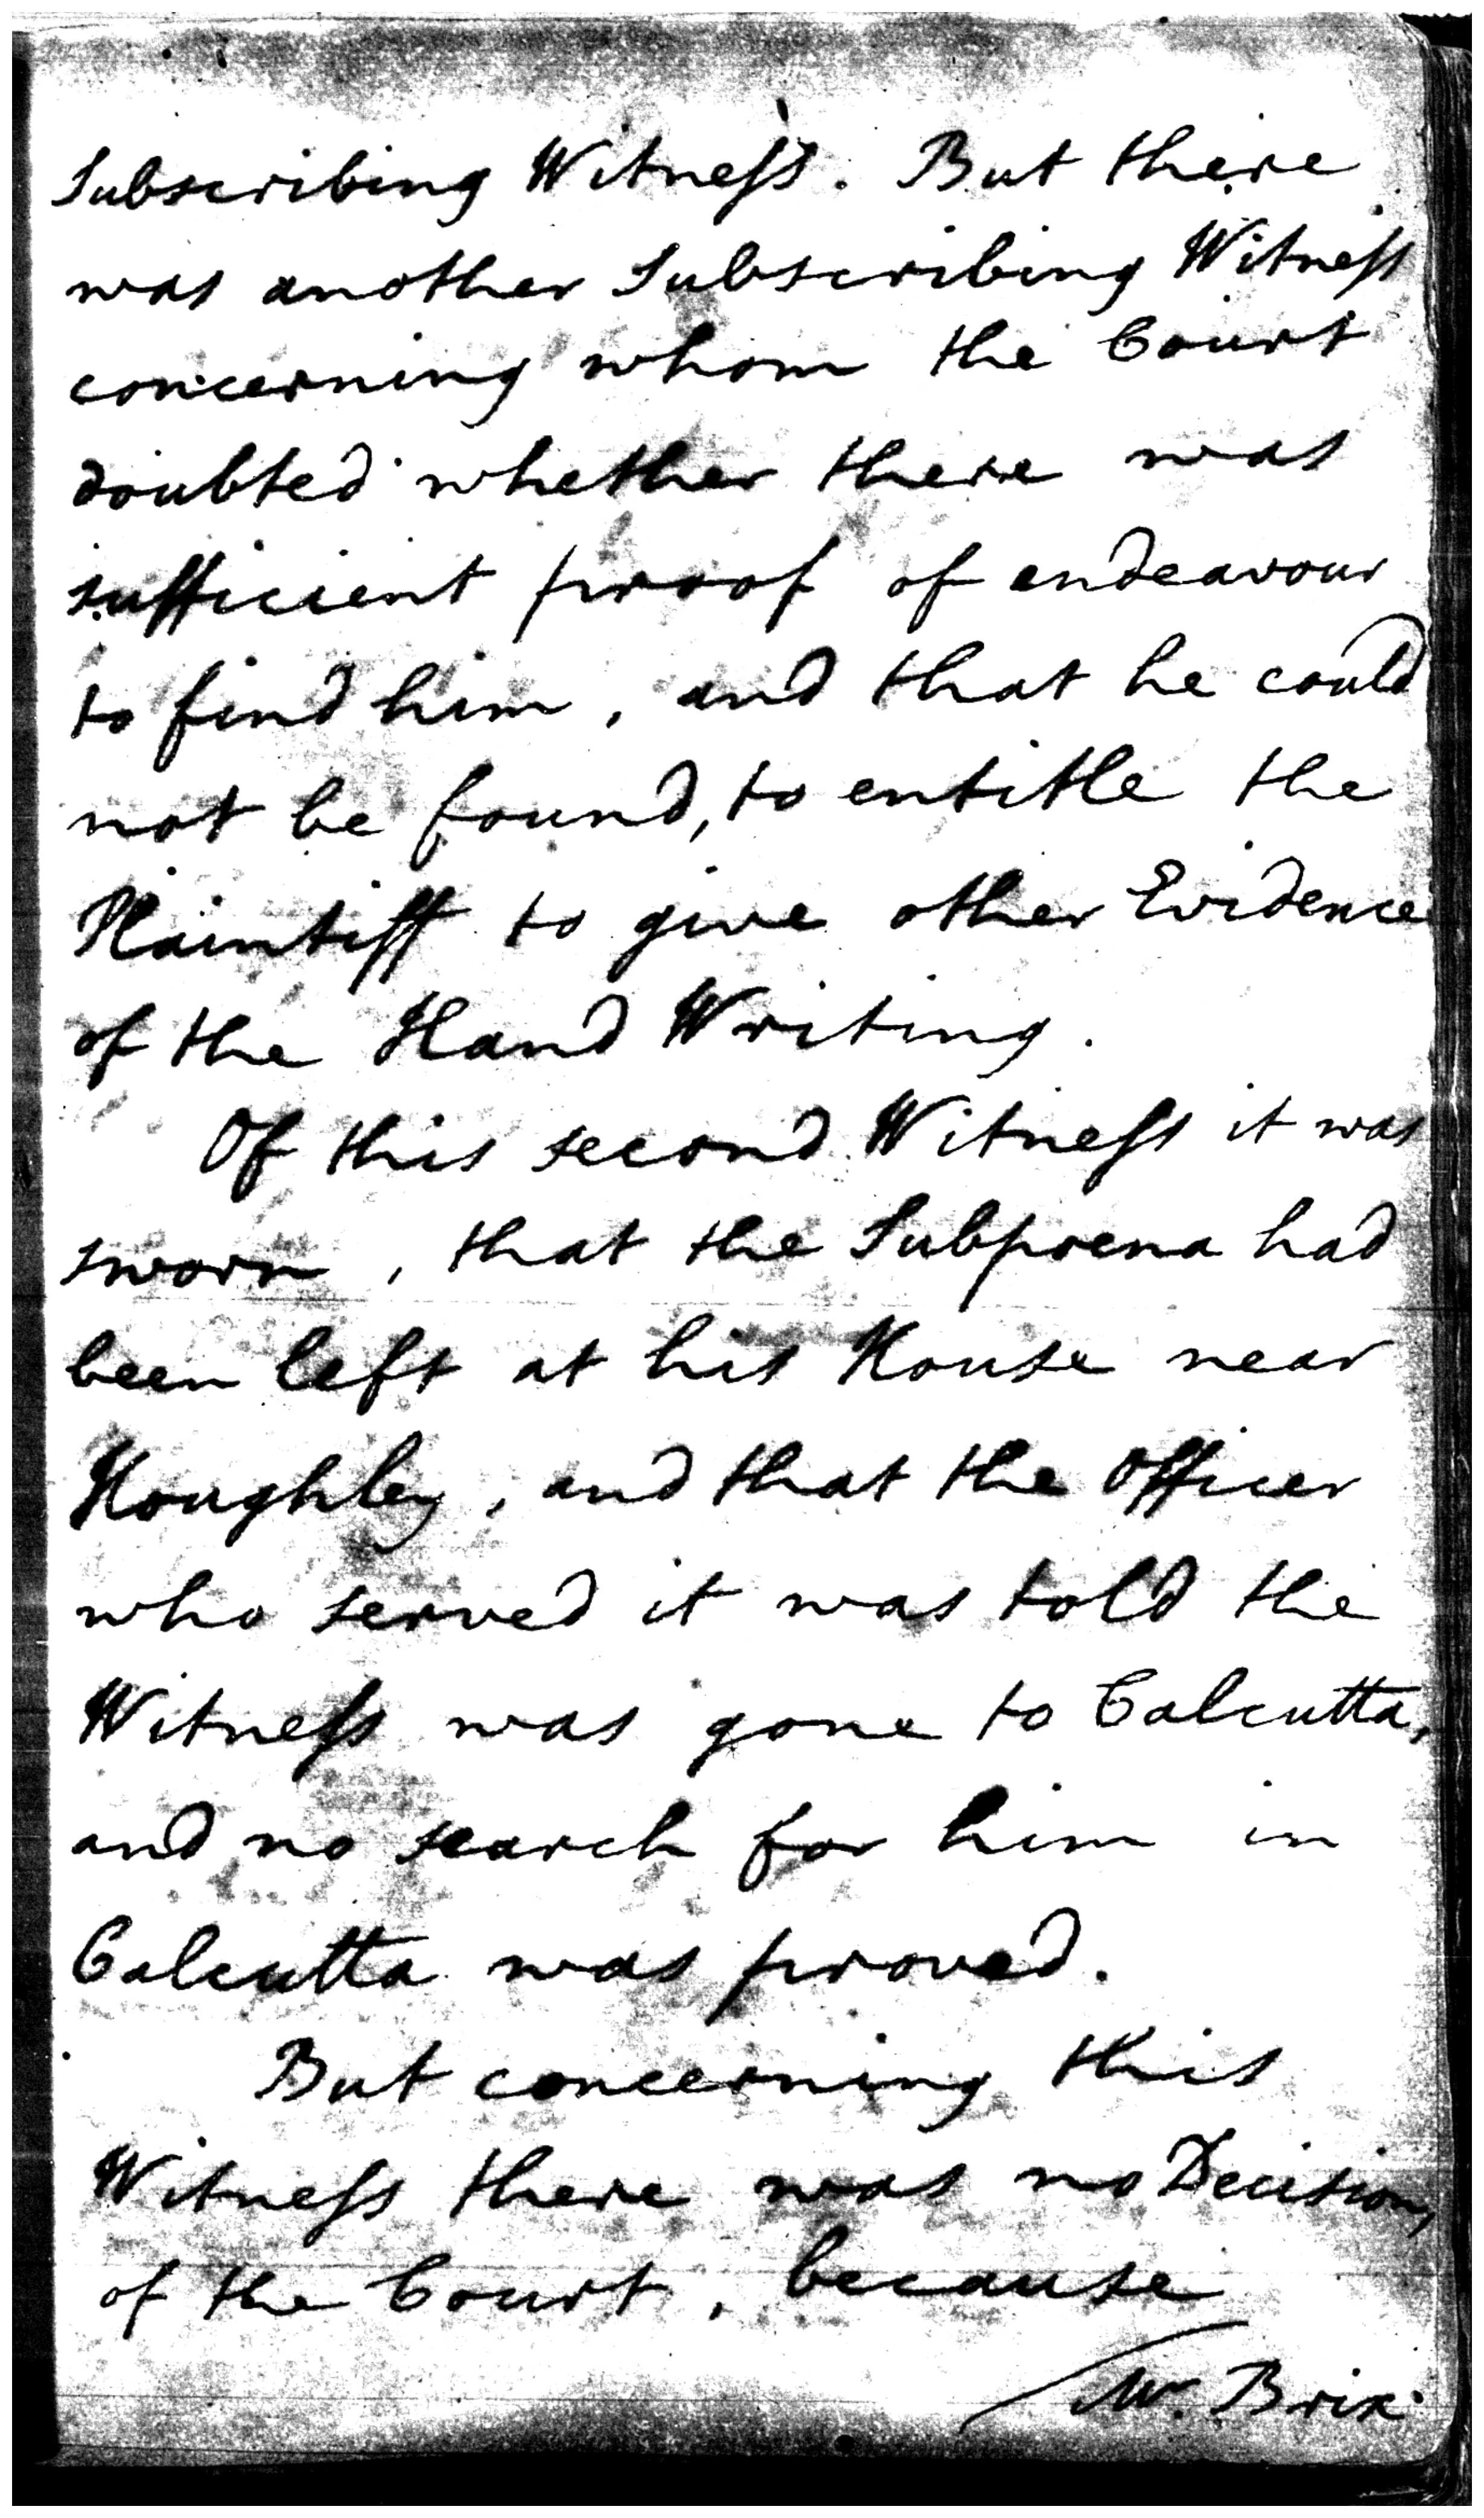 Subscribing Witneſs. But there
was another Subscribing Witneſs
concerning whom the Court
doubted whether there was
sufficient proof of endeavour
to find him, and that he could
not be found, to entitle the
Plaintiff to give other Evidence
of the Hand Writing.
Of this second Witneſs it was
sworn, that the Subpoena had
been left at his House near
Houghley, and that the Officer
who served it was told the
Witneſs was gone to Calcutta,
and no search for him in
Calcutta was proved.
But concerning this
Witneſs there was no Decision,
of the Court, because
Mr. Brix